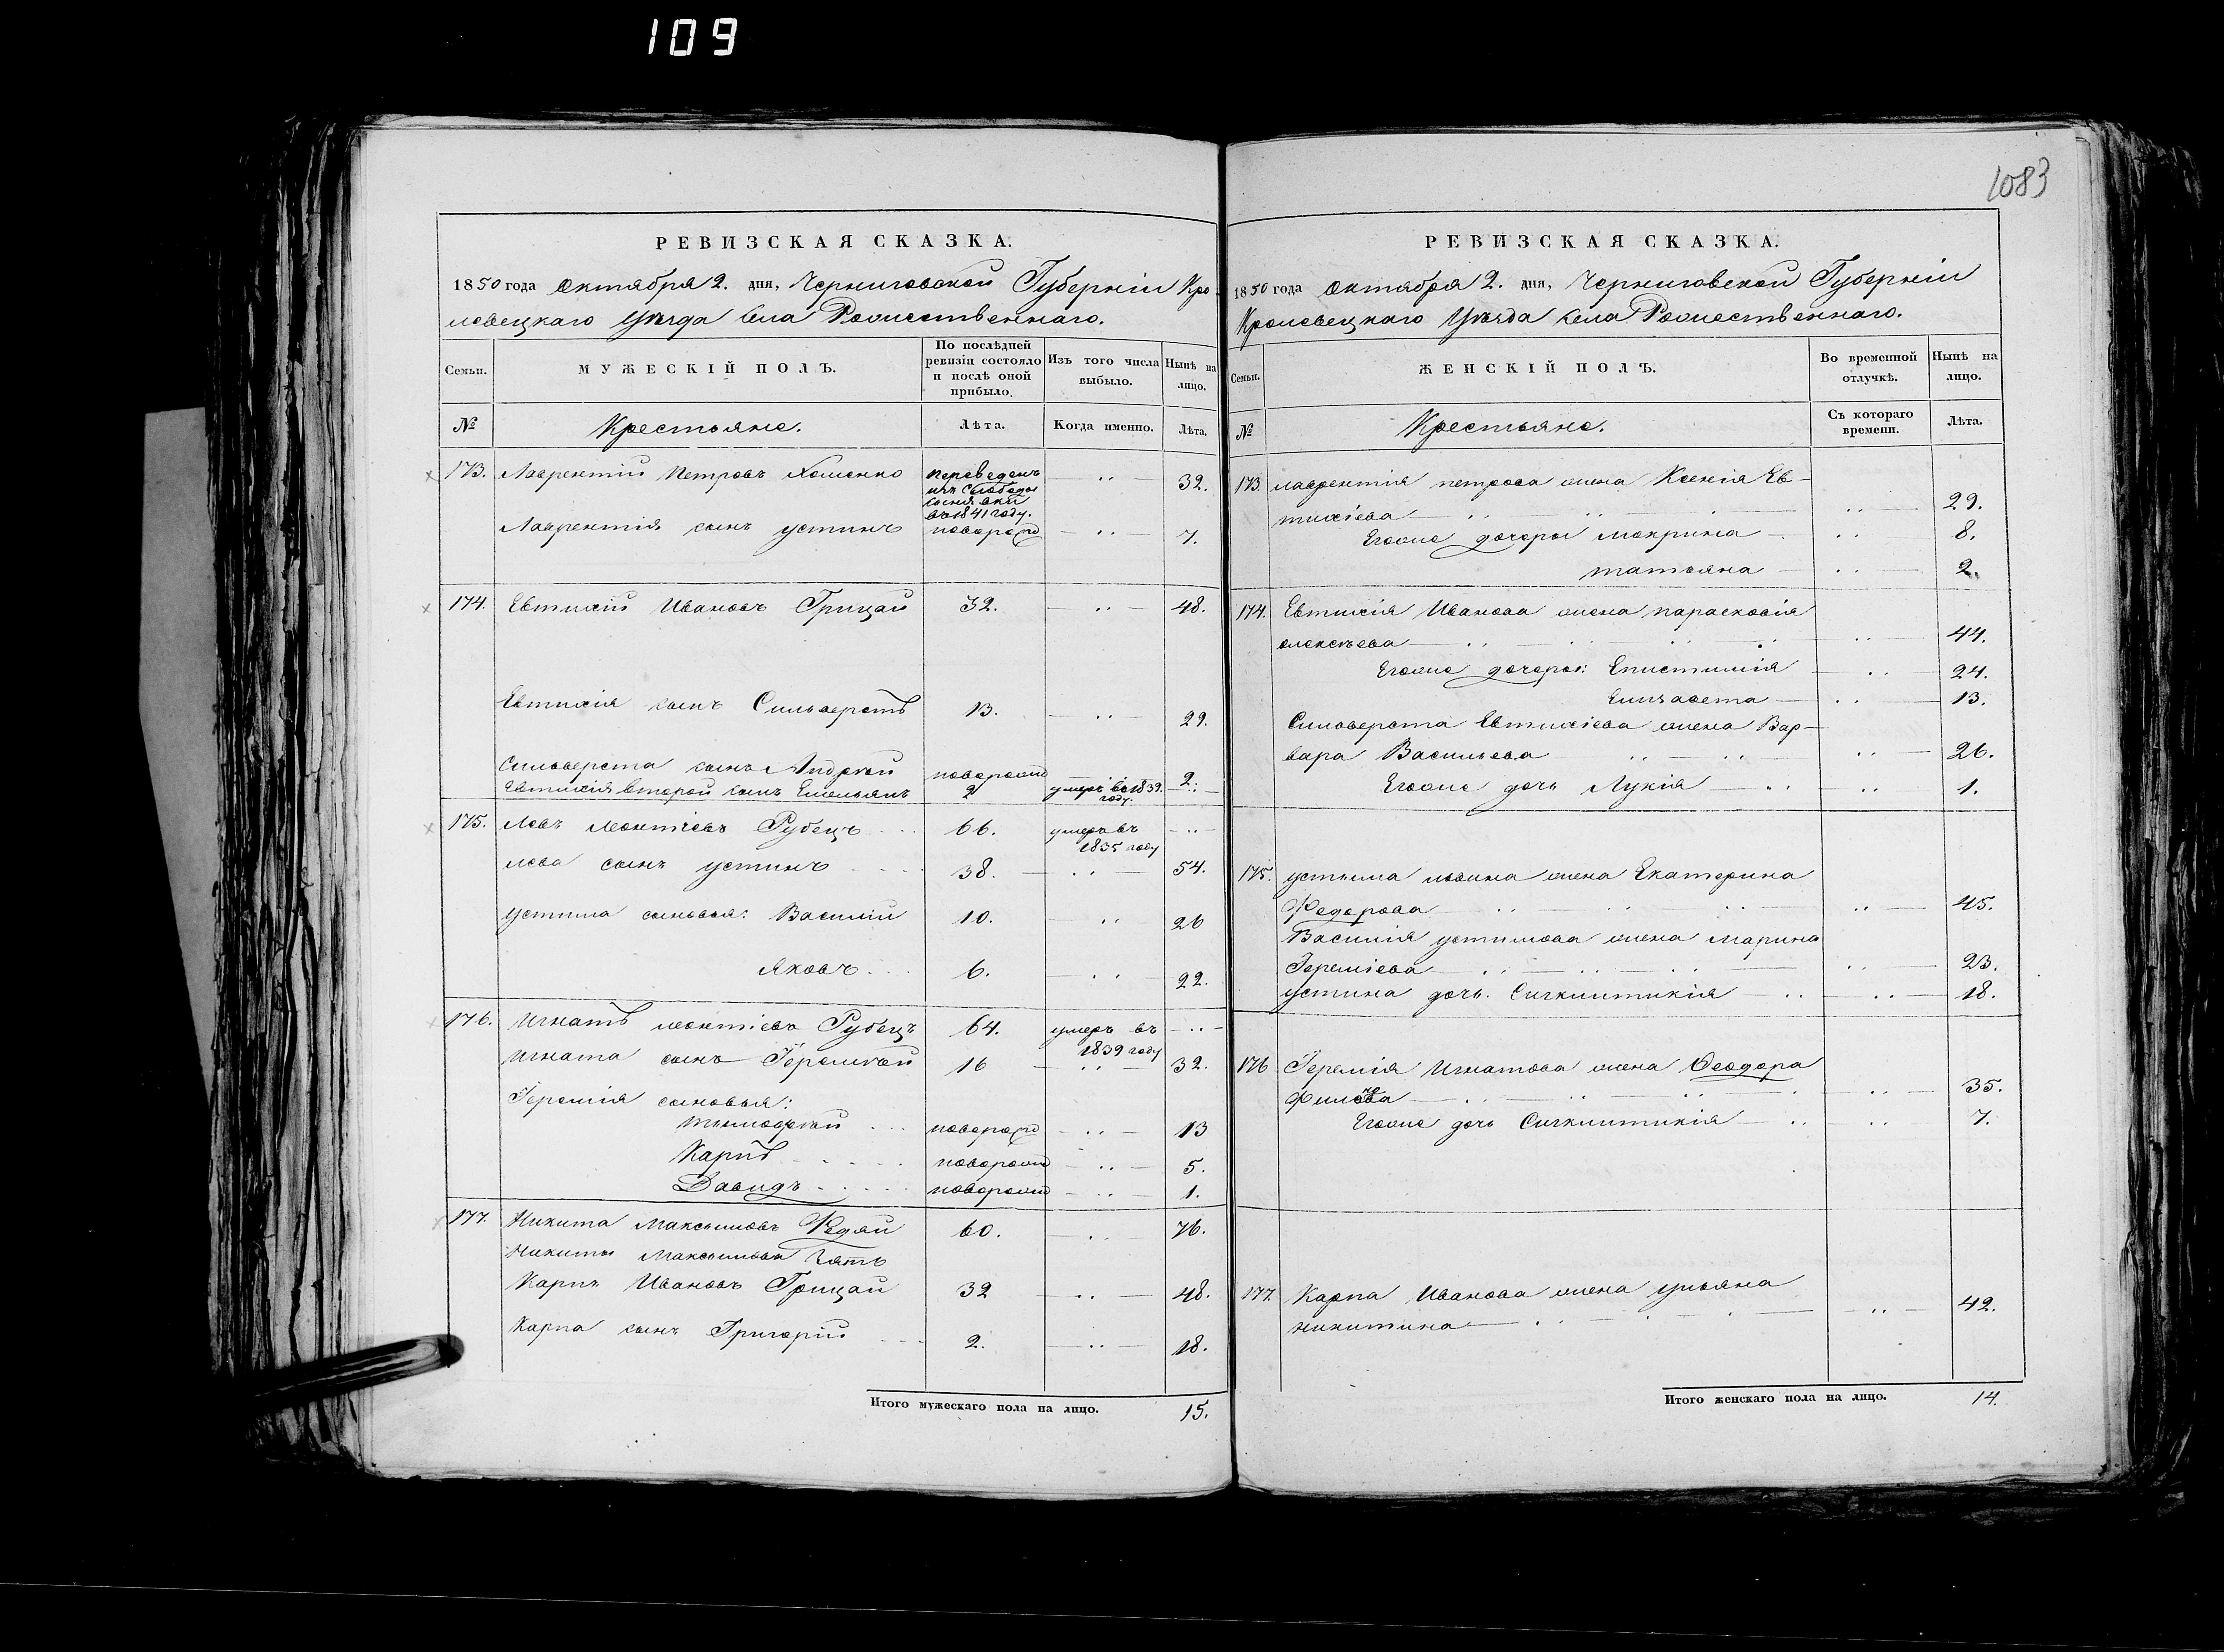 109
1083
РЕВИЗСКАЯ СКАЗКА.
1850 года Октября 2. дня, Черниговской Губерніи Кро-
левецкаго Уѣзда села Рожественнаго.
Семьи.
МУЖЕСКІЙ ПОЛЪ.
По послѣдней ревизіи состояло и послѣ оной прибыло.
Изъ того числа выбыло.
Нынѣ на лицо.
№
Крестьяне.
Лѣта.
Когда именно.
Лѣта.
173. Лаврентій Петровъ Хоменко переведенъ 32.
изъ Слободы
въ 1841 году.
Лаврентія сынъ Устинъ новорожд 7.
174. Евтихій Ивановъ Грицай 32. 48.
Евтихія сынъ Сильверстъ 13. 29.
Сильверста сынъ Андрей новорожд 2.
Евтихія второй сынъ Емельянъ 2 умеръ въ 1839.
году.
175. Левъ Леонтіевъ Рубецъ 66. умеръ въ
1835 году
Льва сынъ Устинъ 38. 54.
Устина сыновья: Василій 10. 26
Яковъ 6. 22.
176. Игнатъ Леонтіевъ Рубецъ 64. умеръ въ
1839 году
Игната сынъ Іеремѣй 16 32.
Іеремія сыновья:
Тимофѣй новорожд 13
Карпъ новорожд 5.
Давидъ новорожд 1.
177. Никита Максимовъ Федяй 60. 76.
Никиты Максимова Зять
Карпъ Ивановъ Грицай 32 48.
Карпа сынъ Григорій 2. 18.
Итого мужескаго пола на лицо. 15.
РЕВИЗСКАЯ СКАЗКА.
1850 года Октября 2. дня, Черниговской Губерніи
Кролевецкаго Уѣзда села Рожественнаго.
Семьи.
ЖЕНСКІЙ ПОЛЪ.
Во временной отлучкѣ.
Нынѣ на лицо.
№
Крестьяне.
Съ котораго времени.
Лѣта.
173. Лаврентія Петрова жена Ксенія Ев-
тихіева 29.
Егоже дочеры Макрина 8.
Татьяна 2.
174. Евтихія Иванова жена Парасковія
Алексѣева 44.
Егоже дочеры: Епистимія 24.
Елизавета 13.
Сильверста Евтихіева жена Вар-
вара Васильева 26.
Егоже дочь Лукія 1.
175. Устина Львина жена Екатерина
Федорова 45.
Василія Устинова жена Марина
Іереміева 23.
Устина дочь Сигклитикія 18.
176 Іеремія Игнатова жена Феодора
35.
Егоже дочь Сигклитикія 7.
177. Карпа Иванова жена Ульяна
Никитина 42.
Итого женскаго пола на лицо. 14.